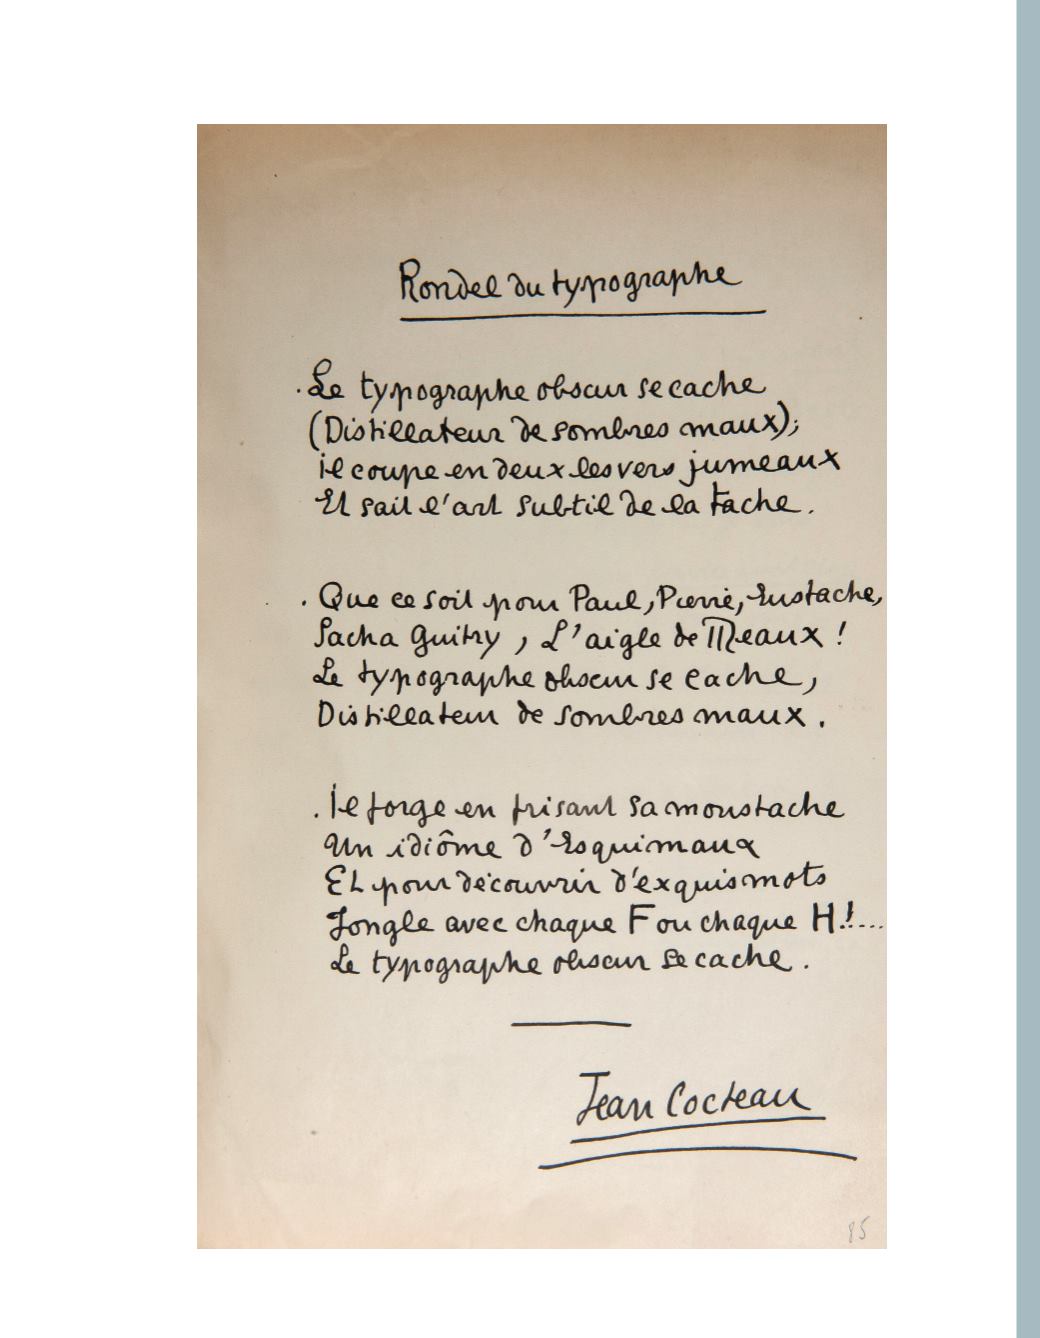 Rondel du typographe
. Le typographe obscur se cache
(Distillateur de sombres maux);
il coupe en deux les vers jumeaux
Et sait l'art subtil de la tache.
. Que ce soit pour Paul, Pierre, Eustache,
Sacha Guitry, L'aigle de Meaux !
Le typographe obscur se cache,
Distillateur de sombres maux.
. Il forge en frisant sa moustache
Un idiôme d'Esquimaux
Et pour découvrir d'exquis mots
Jongle avec chaque F ou chaque H!....
Le typographe obscur se cache.
Jean Cocteau
85